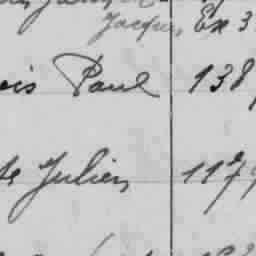 Jacques, Ex 3
is Paul 138
te Julien 1179